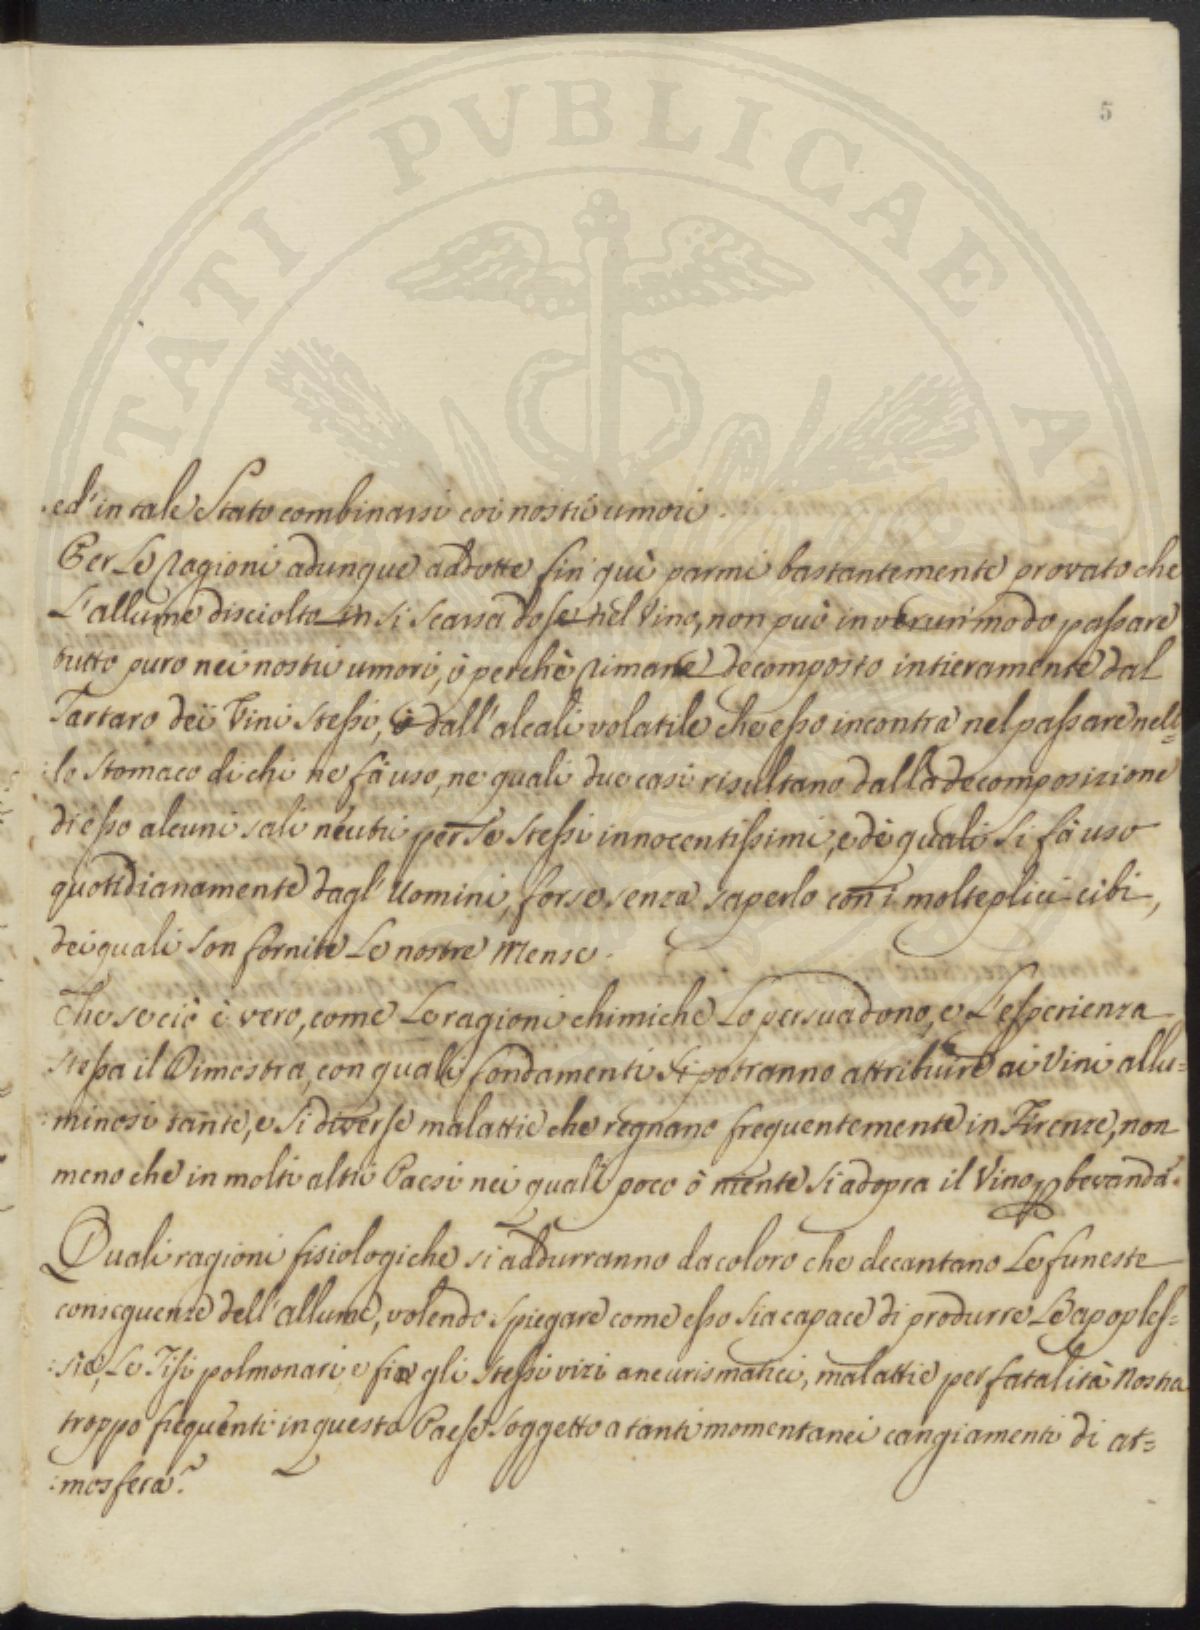 5
ed' in tale Stato combinarsi coi nostri umori.
Per Le Ragioni adunque addotte fin quì parmi bastantemente provato che
L'allume disciolto in si scarsa dose nel Vino, non può in verun' modo passare
tutto puro nei nostri umori, ò perchè rimane decomposto intieramente dal
Tartaro deï Vini stessi, ò dall' alcali volatile che esso incontra nel passare nel=
:lo stomaco di chi ne fà uso, ne quali due casi risultano dalla decomposizione
di esso alcuni sali neutri per se stessi innocentissimi, e dè quali si fà uso
quotidianamente dagl' Uomini, forse senza saperlo con i molteplici cibi,
dei quali son fornite Le nostre Mense.
Che se ciò è vero, come Le ragioni chimiche Lo persuadono, e L'esperienza
stessa il Dimostra, con quali fondamenti si potranno attribuire ai Vini allu=
:minosi tante, e si diverse malattie che regnano frequentemente in Firenze, non
meno che in molti altri Paesi nei quali poco ò niente si adopra il Vino p bevanda.
Quali ragioni fisiologiche si addurranno da coloro che decantano Le funeste
conseguenze dell' allume, volendo spiegare come esso sia capace di produrre Le apoples=
:sie, Le Tisi polmonari, e fin gli stessi vizi aneurismatici, malattie per fatalità Nostra
troppo frequenti in questo Paese soggetto a tanti momentanei cangiamenti di at=
:mosfera?
TATI PVBLICAE A